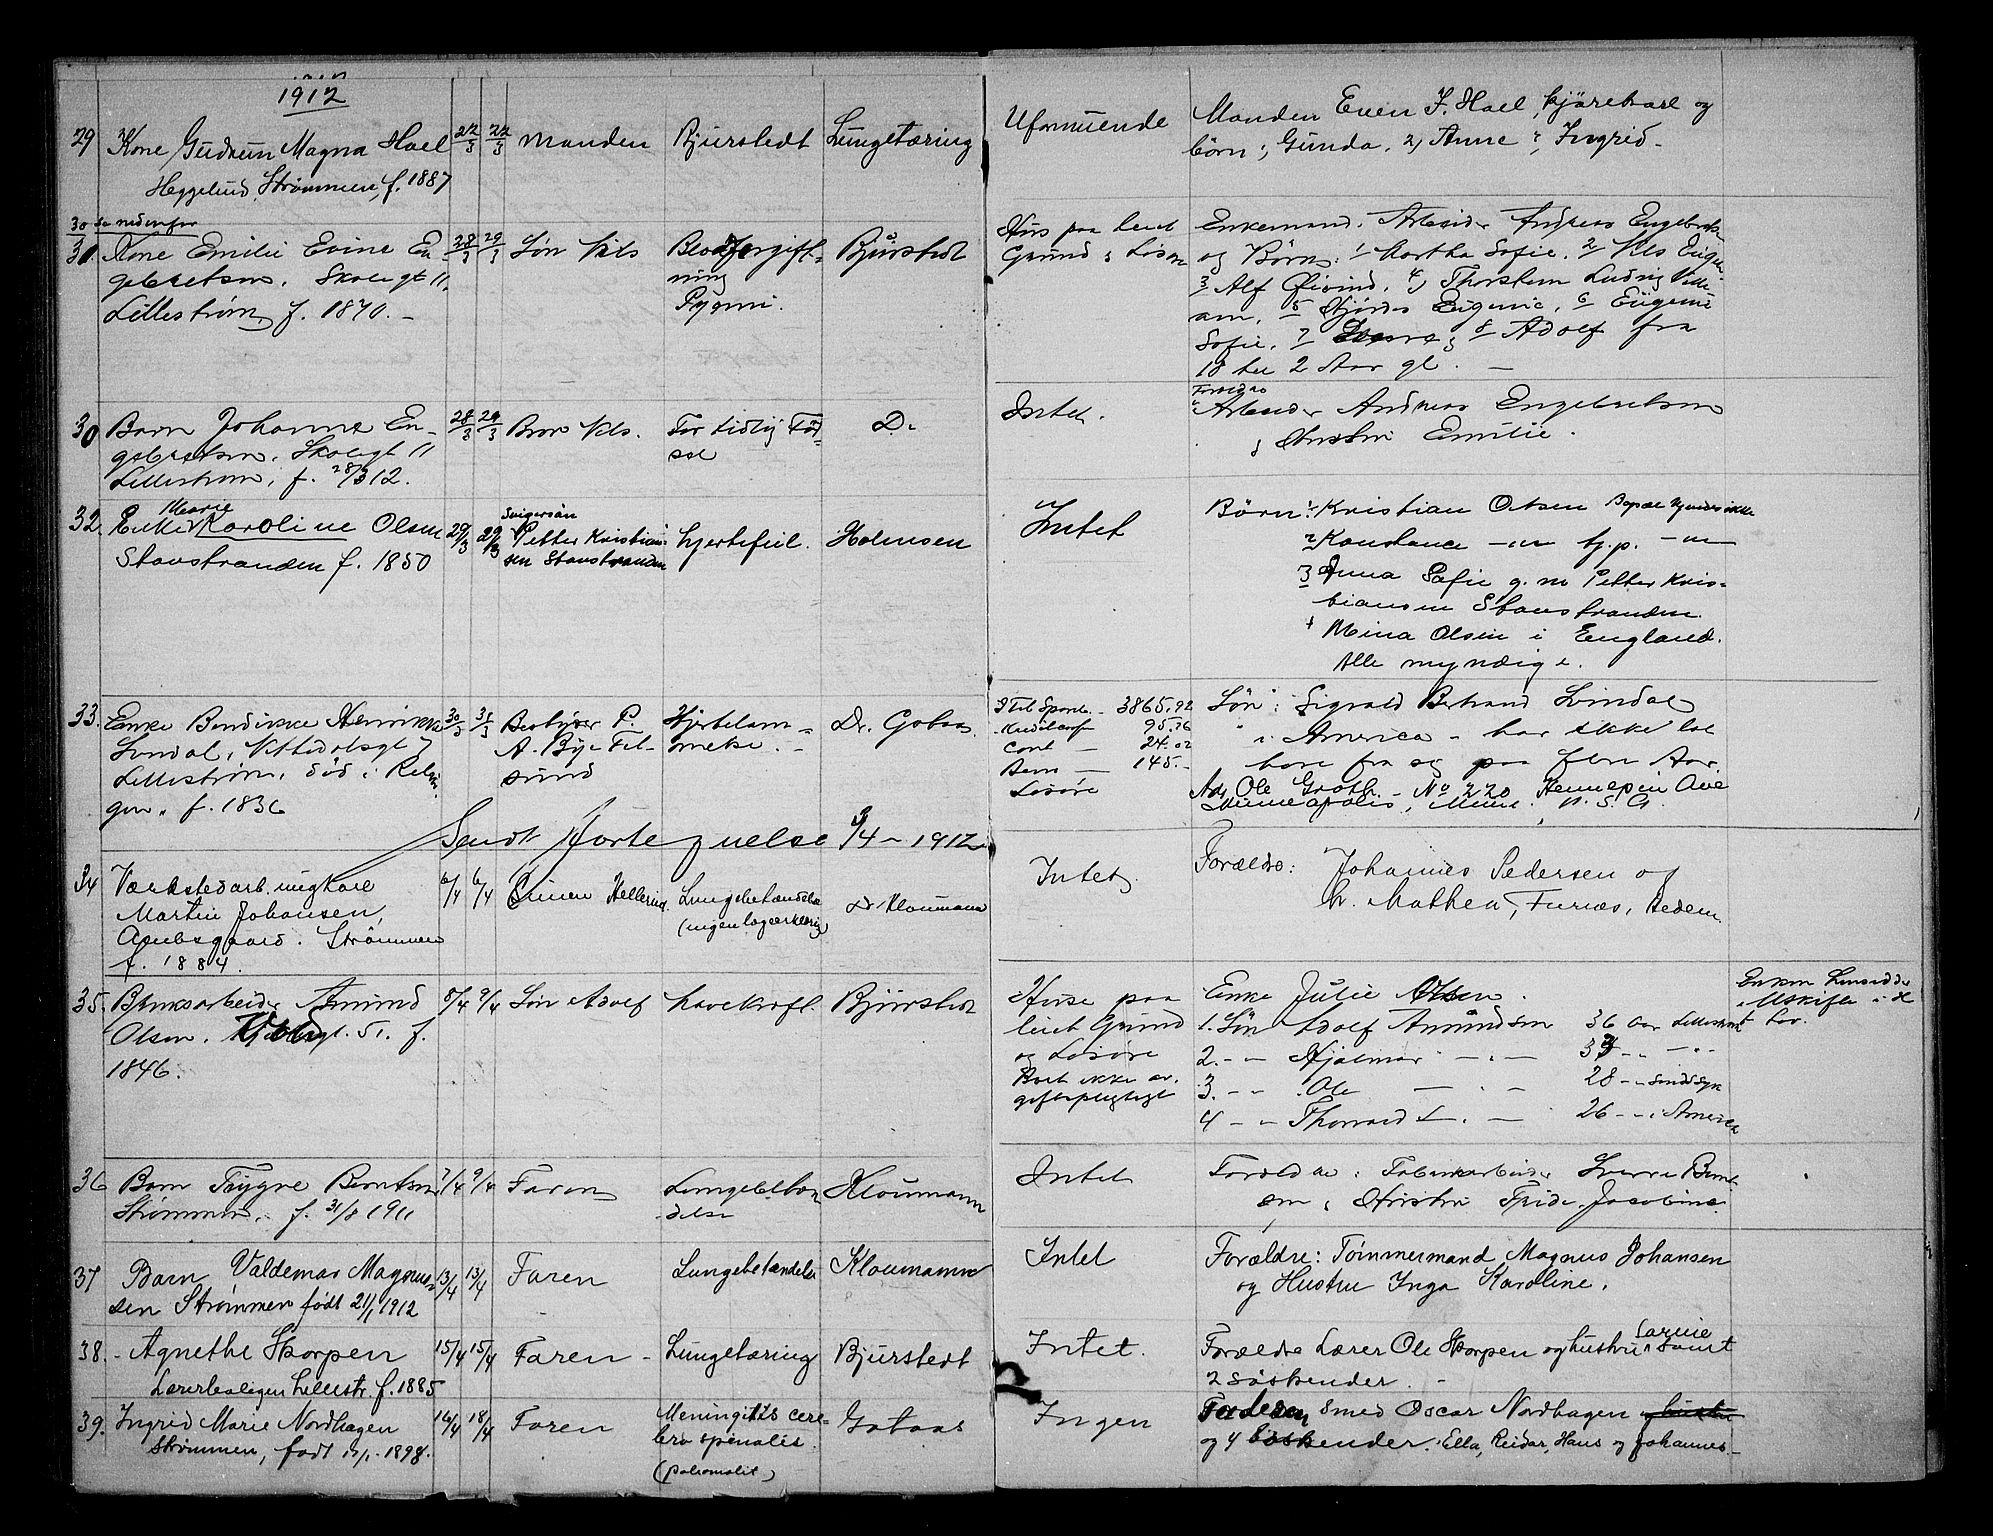 1912
29 Kone Gudrun Magna Hael 22/3 22/3 Manden Bjurstedt Lungetæring Uformuende Manden Even J. Hael, kjørekarl og
Heggelund, Strømmen, f. 1887 børn: Gunda, 2) Anne Ingrid
30 se nedenfor
31. Kone Emilie Evine En- 28/3 29/3 Søn Nils Blodforgift- Bjurstedt Hus paa leiet Enkemand, Arbeider Andreas Engebretsen
gebretsen. Skolegt 11, ning Grund & Løsøre og Børn: 1 Martha Sofie, 2 Nils Eugen
Lillestrøm f. 1870. - Pyæmi. 3 Alf Øivind, 4 Thorstein Ludvig Willi-
am, 5 Hjørdis Eugenie, 6 Eugenie
Sofie, 7 & 8 Adolf fra
18 til 2 Aar gl. -
30 Barn Johanne En- 28/3 29/3 Bror Nils. For tidlig Fød- D. Intet. Forældre Arbeider Andreas Engebretsen
gebretsen, Skolegt 11 sel & Hustru Emilie.
Lillestrøm, f. 28/3 12.
32. Enke Marie Karoline Olsen 29/3 29/3 Svigersøn Petter Kristian- hjertefeil. Holmsen Intet Børn: 1 Kristian Olsen Bopæl kjendes ikke
Stavstranden f. 1850 sen Stavstranden 2 Konstance
3 Anna Sofie g. m Petter Kris-
tiansen Stavstranden.
4 Mina Olsen i England.
Alle myndige.
33. Enke Bendikke Henrikke 30/3 31/3 Bestyrer P. Hjertelam- Dr. Gotaas. 3865,92 Søn: Sigvald Bertrand Lindal
A. Bye Fet- melse. - 95.76 i America - har ikke lat
Lillestrøm, død i Rælin- sund Cont - 24.02 høre fra sig paa flere Aar.
gen. f. 1836 145.- Løsøre Adr. Ole Groth - No 220 Hennepin Ave
Minneapolis, Minn. U. S. A.
Sendt Fortegnelse 9/4 - 1912
34 Værkstedarb. ungkarl 6/4 6/4 Lungebetændelse Dr. Kloumann Intet Forældre: Johannes Pedersen og
Martin Johansen, (ingen lægeerklæring) h. Mathea, Furnes, Hedem.
Strømmen
f. 1884.
35. Bruksarbeider Amund 8/4 9/4 Søn Adolf Mavekræft. Bjurstedt Huse paa Enke Julie Olsen. Enken hensidder
Olsen, 51. f. leiet Grund 1. Søn Adolf Amundsen 36 Aar Lillestrøm i Uskifte i H
1846. og Løsøre 2. - - Hjalmar - - - t Lov.
Boet ikke av- 3. - - Ole - - 28 - - sindssyk
giftspligtigt 4 - - Thorvald - - 26 - - i America
36 Barn Trygve Berntsen 7/4 9/4 Faren Lungebetæn- Kloumann Intet Forældre: Fabrikarbeider Sverre Bernt-
Strømmen, f. 31/8 1911 delse sen & Hustru Frida Jacobine.
37 Barn Valdemar Magnus- 13/4 13/4 Faren Lungebetændelse Kloumann Intet Forældre: Tømmermand Magnus Johansen
sen Strømmen født 21/1 1912 og Hustru Inga Karoline.
38. - Agnethe Skorpen 15/4 15/4 Faren - Lungetæring Bjurstedt Intet. Forældre Lærer Ole Skorpen og hustru Karine samt
Lærerboligen Lillestr. f. 1885 2 søskender. -
39. Ingrid Marie Nordhagen 16/4 18/4 Faren Meningitis cere- Gotaas Ingen Faderen, smed Oscar Nordhagen og hustru
Strømmen, født 1898. bro spinalis. og 4 søskender. Ella, Reidar, Hans og Johannes. -